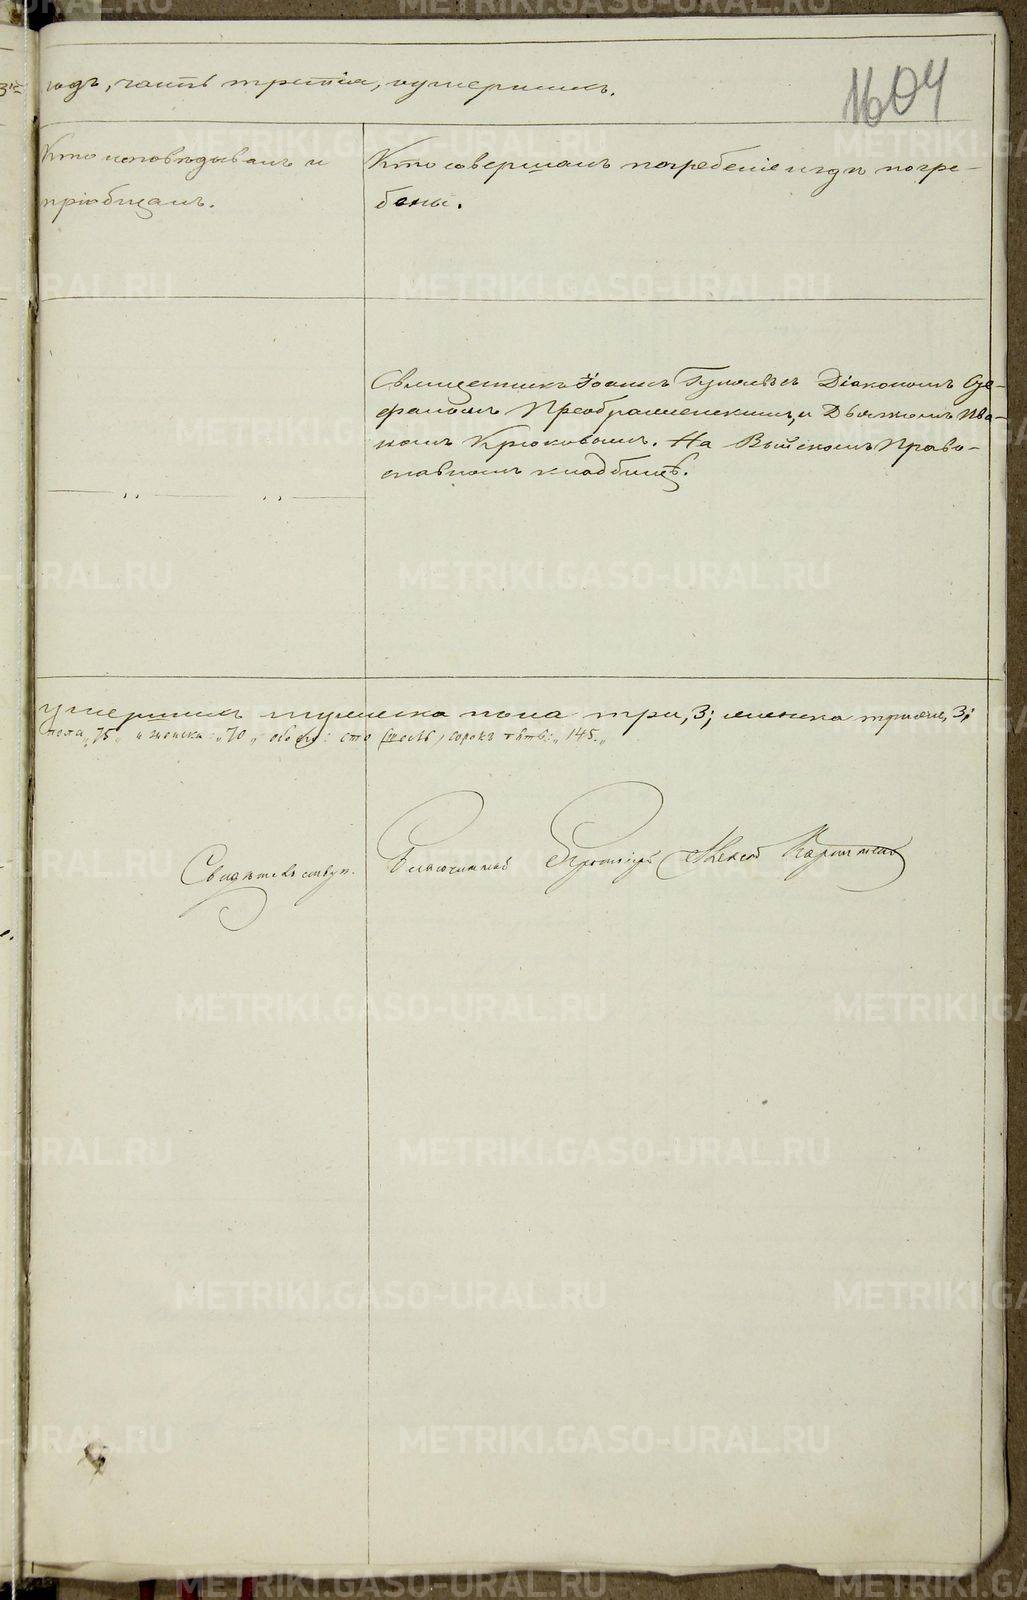 1604
годъ, часть третія, о умершихъ.
Кто исповѣдывалъ и
пріобщалъ.
Кто совершалъ погребеніе и гдѣ погре-
бены.
Священникъ Іоаннъ съ Діакономъ Сте-
фаномъ Преображенскимъ, и Дьячкомъ Ива-
номъ Крюковымъ. На Выйскомъ Право-
славномъ кладбищѣ.
умершихъ мужеска пола три, 3; женска трое, 3;
пола „75„ и женска: „70„ обоего: сто сорокъ пять: „145.„
Свидѣтельствув. Благочинный Протоіерей Алексѣй
METRIKI.GASO-URAL.RU